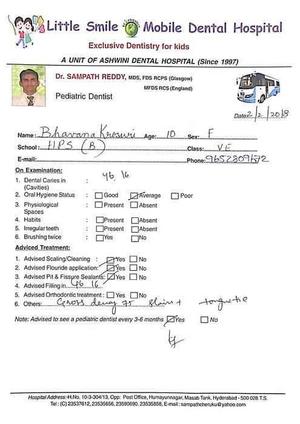 Little Smile Mobile Dental Hospital
Exclusive Dentistry for kids
A UNIT OF ASHWINI DENTAL HOSPITAL (Since 1997)
Dr. SAMPATH REDDY, MDS, FDS RCPS (Glasgow)
MFDS RCS (England)
Pediatric Dentist
Date: 2/2/2018
Name: Bhavana Age: 10 Sex: F
School: HPS (B) Class: VE
E-mail: Phone:
On Examination:
1. Dental Caries in (Cavities) : 46, 16
2. Oral Hygiene Status : Good Average Poor
3. Physiological Spaces : Present Absent
4. Habits : Present Absent
5. Irregular teeth : Present Absent
6. Brushing twice : Yes No
Adviced Treatment:
1. Advised Scaling/Cleaning : Yes No
2. Advised Flouride application: Yes No
3. Advised Pit & Fissure Sealants: Yes No
4. Advised Filling in 46 16
5. Advised Orthodontic treatment : Yes No
6. Others: Gross decay 75
Note: Advised to see a pediatric dentist every 3-6 months Yes No
Hospital Address: H.No. 10-3-304/13, Opp. Post Office, Humayunnagar, Masab Tank, Hyderabad - 500 028
Tel: (C) 23537612, 23535656, 23593690, 23535858, E-mail: sampathcheruku@yahoo.com